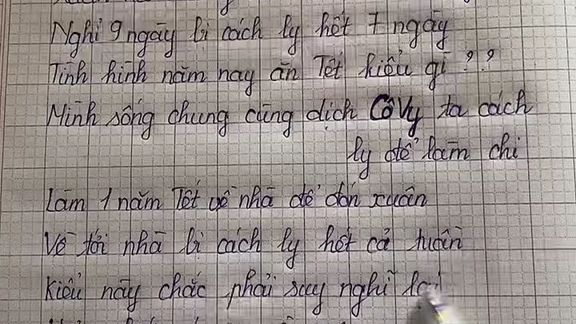 Nghỉ 9 ngày bị cách ly hết 7 ngày
Tình hình năm nay ăn Tết kiểu gì ??
Mình sống chung cùng dịch CôVy ta cách
ly để làm chi
Làm 1 năm Tết về nhà để đón xuân
Về tới nhà bị cách ly hết cả tuần
Kiểu này chắc phải suy nghĩ lại